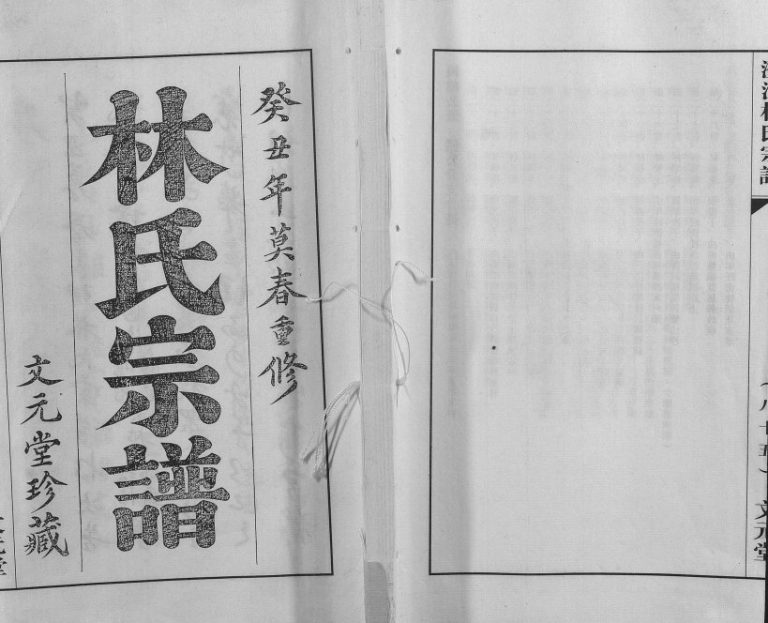 癸丑年莫春重修
林氏宗譜
文元堂珍藏
林氏宗譜
(八十五) 文元堂